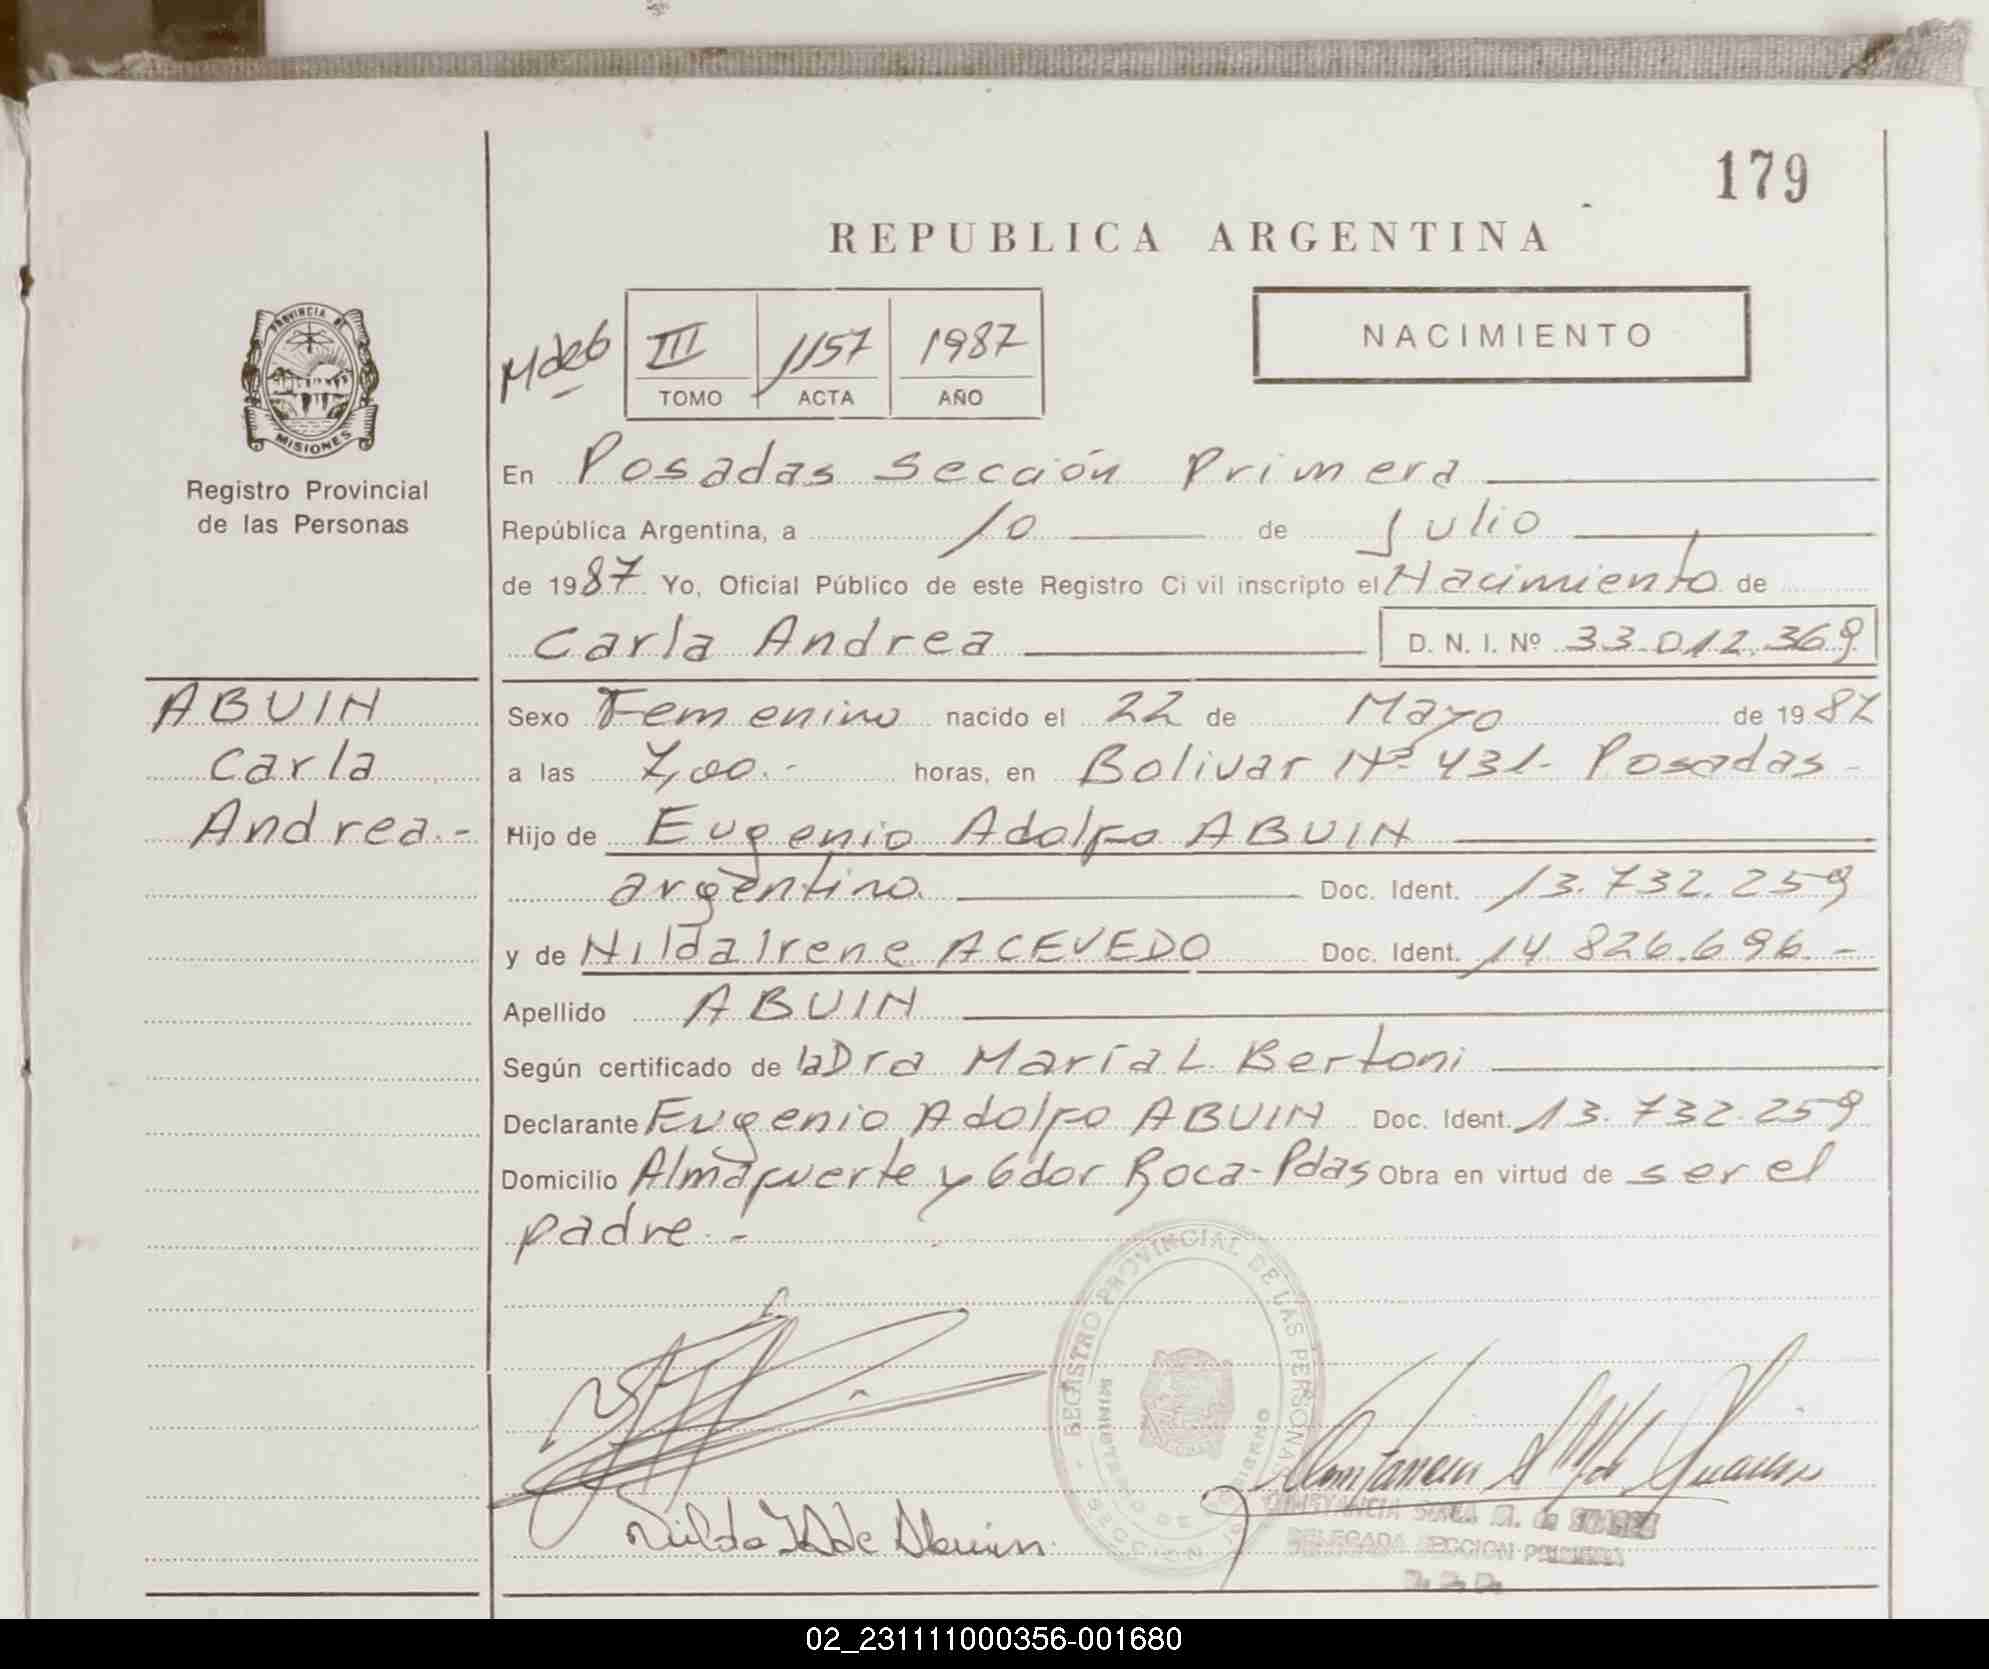 179
REPUBLICA ARGENTINA
PROVINCIA DE
MISIONES
Registro Provincial
de las Personas
III 1157 1987
TOMO ACTA AÑO
NACIMIENTO
En Posadas Sección Primera
República Argentina, a 10 de Julio
de 1987 Yo, Oficial Público de este Registro Civil inscripto el Nacimiento de
Carla Andrea D. N. I. Nº 33.012.369
ABUIN
Carla
Andrea.-
Sexo Femenino nacido el 22 de Mayo de 1987
a las 7,00.- horas, en Bolivar Nº 431- Posadas-
Hijo de Eugenio Adolfo ABUIN
argentino. Doc. Ident. 13.732.259
y de Nilda Irene ACEVEDO Doc. Ident. 14.826.696.-
Apellido ABUIN
Según certificado de la Dra María L. Bertoni
Declarante Eugenio Adolfo ABUIN Doc. Ident. 13.732.259
Domicilio Almafuerte y Gdor Roca-Pdas Obra en virtud de ser el
padre.-
REGISTRO PROVINCIAL DE LAS PERSONAS
MINISTERIO DE GOBIERNO
SECCION
Nilda I A de Abuin
CONSTANCIA SARA M. de SUAREZ
DELEGADA SECCION PRIMERA
02_231111000356-001680